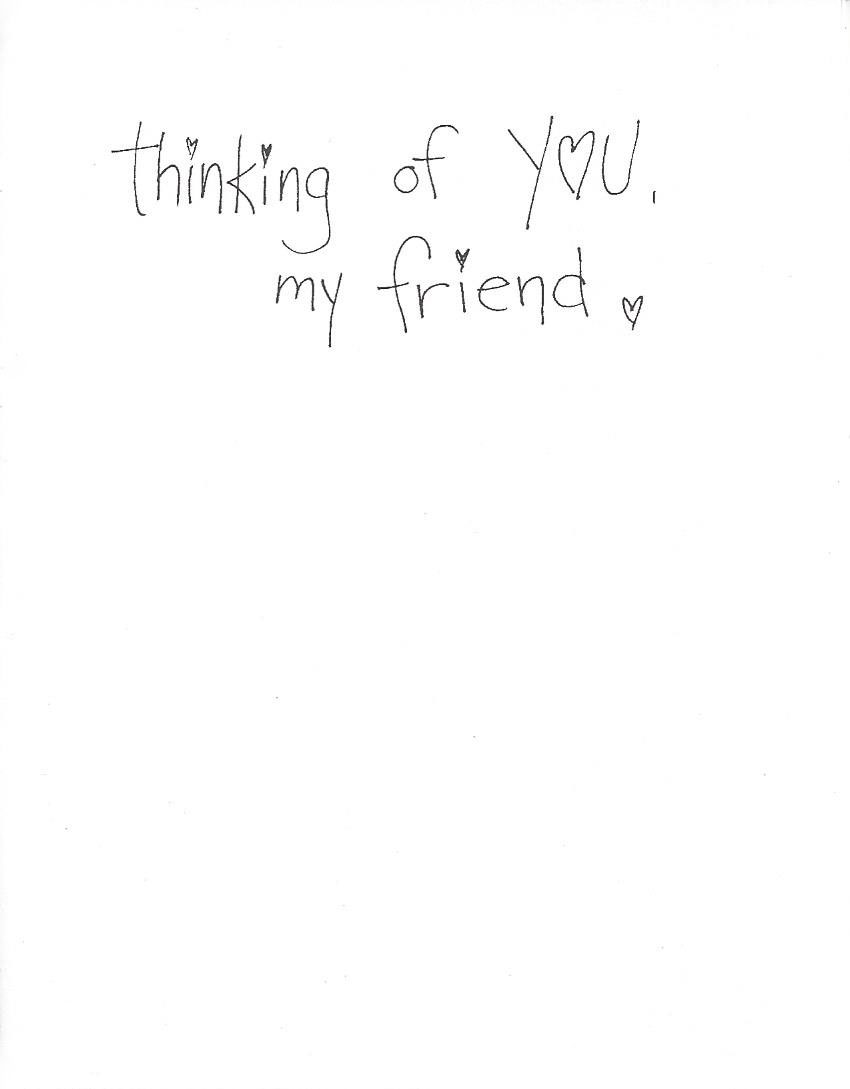 thinking of Y♡U,
my friend ♡